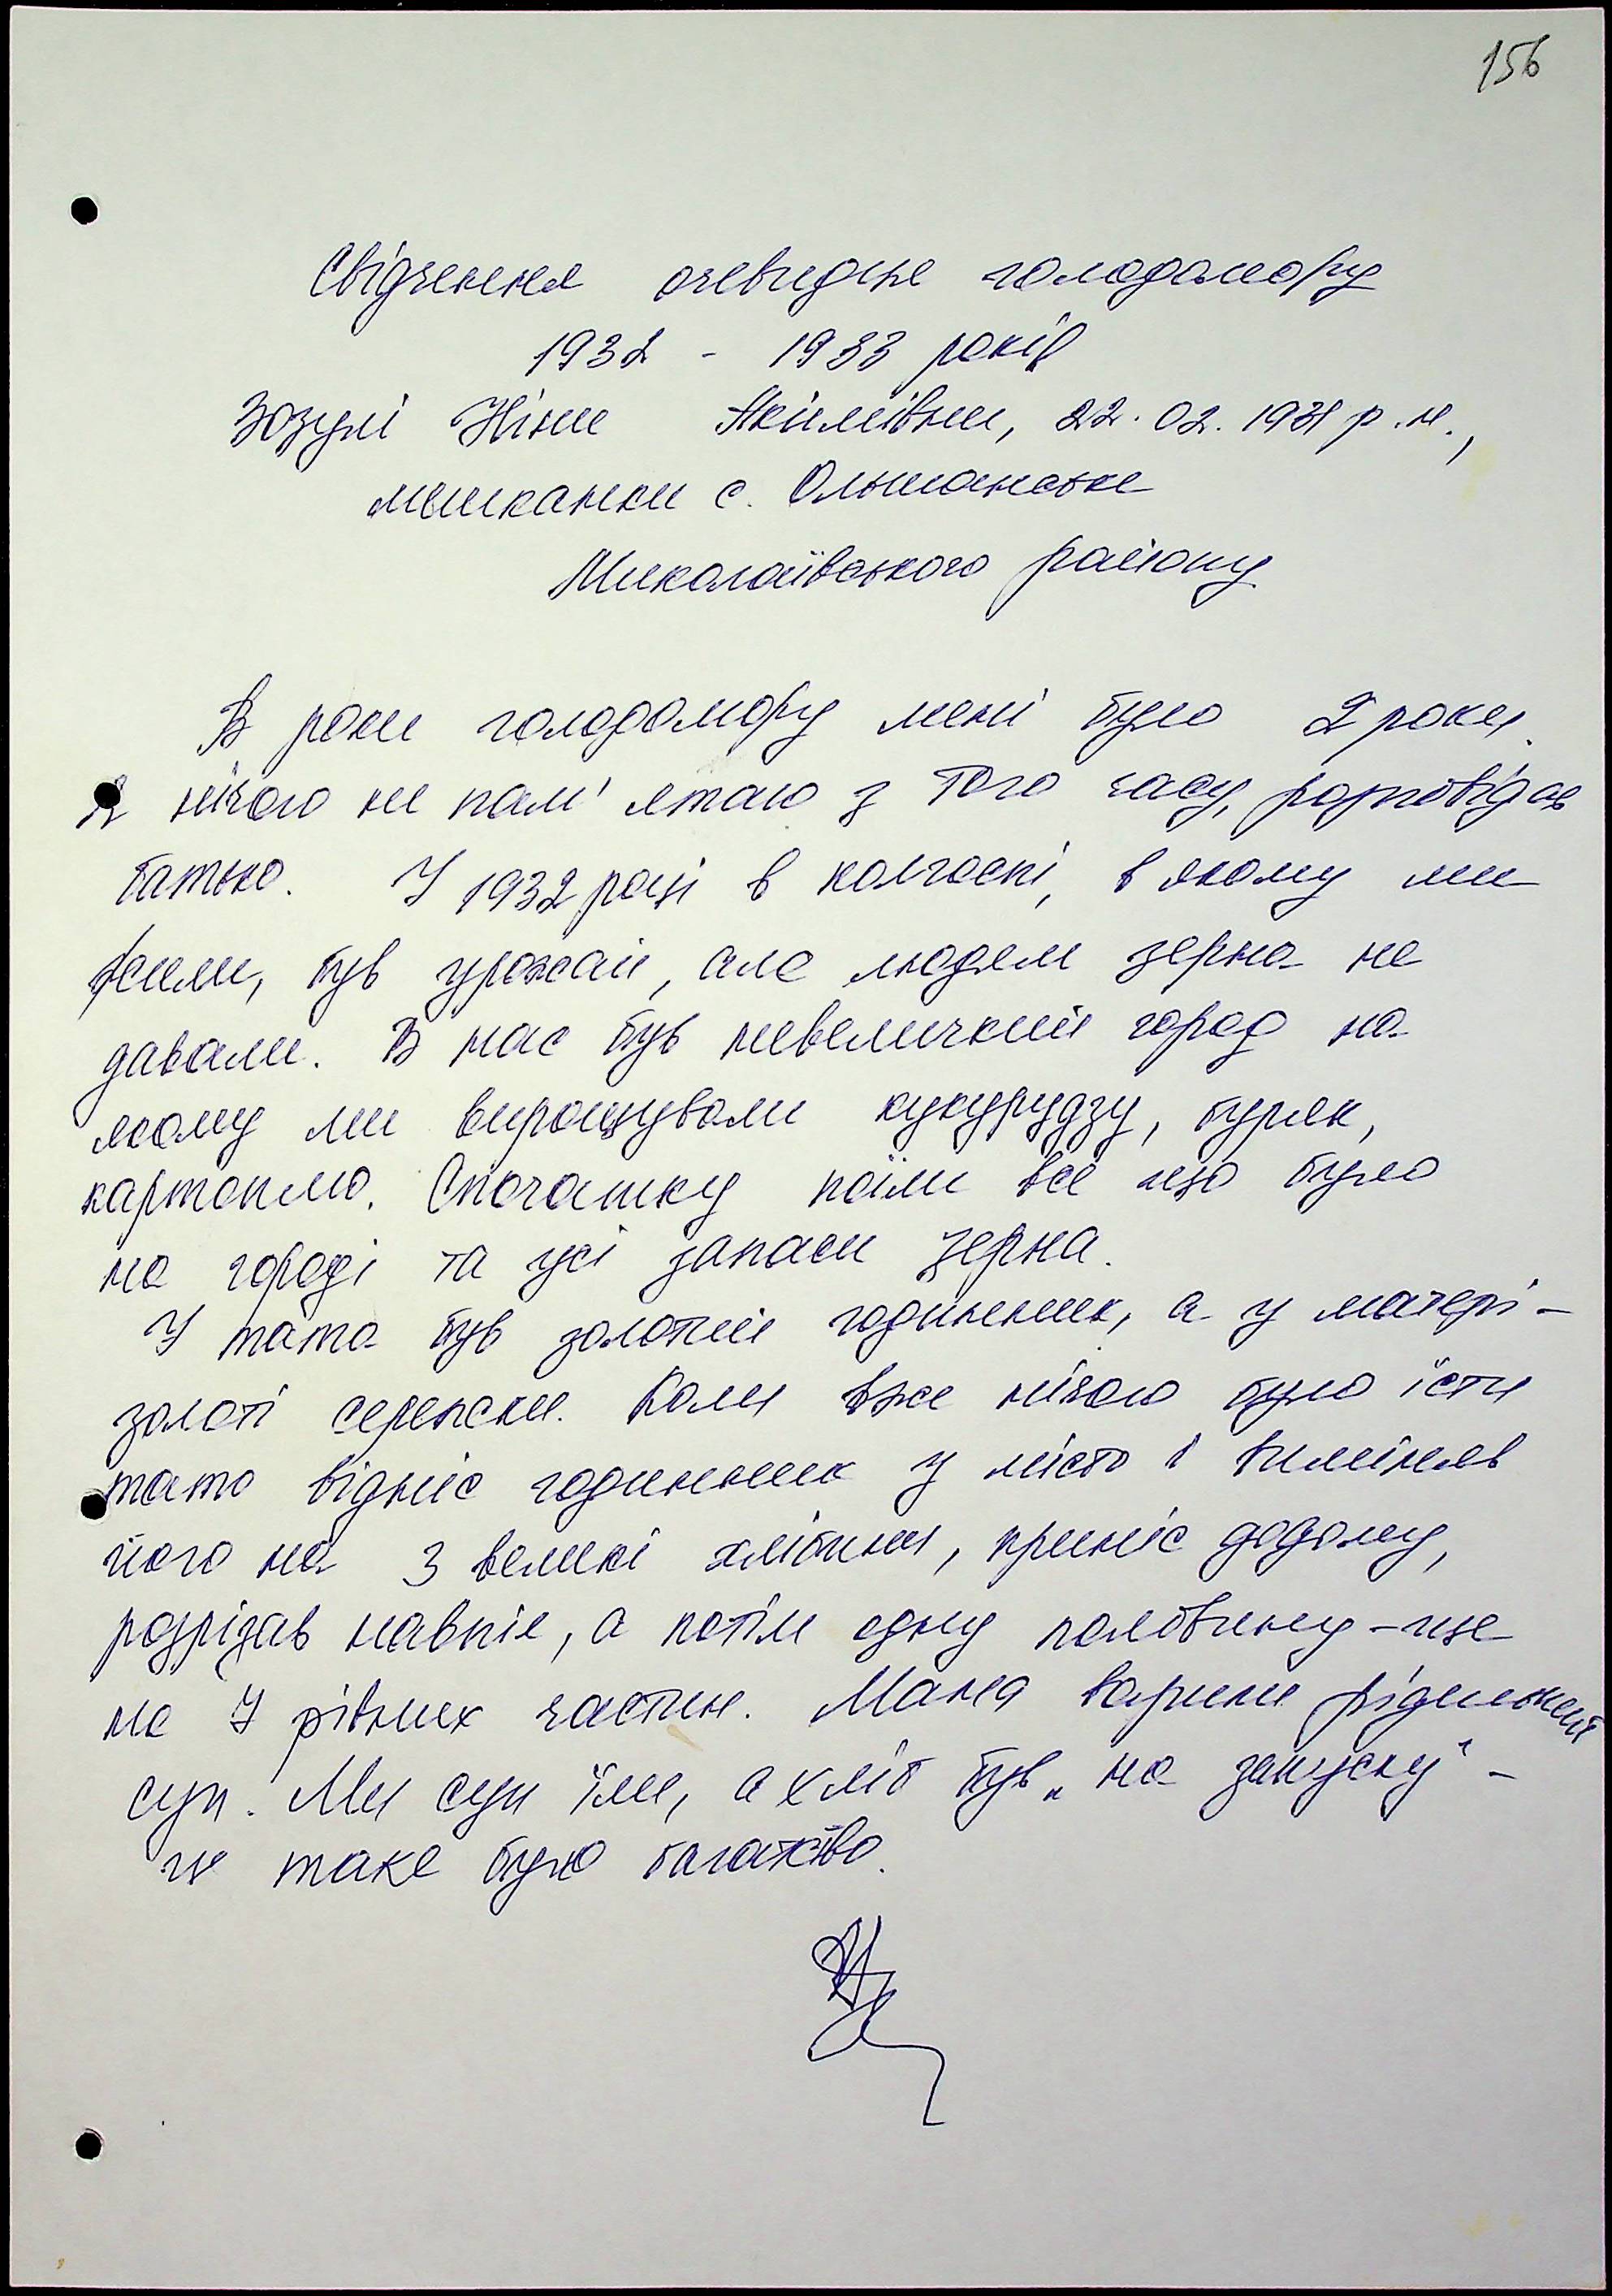 156
Свідчення очевидця голодомору
1932 - 1933 років
Зозулі Ніни Якимівни, 22.02.1931 р.н.,
мешканки с. Ольшанське
Миколаївського району
В роки голодомору мені було 2 роки.
Я нічого не пам'ятаю з того часу, розповідав
батько. У 1932 році в колгоспі, в якому ми
жили, був урожай, але людям зерна не
давали. В нас був невеличкий город на
якому ми вирощували кукурудзу, буряк,
картоплю. Спочатку поїли все що було
на городі та усі запаси зерна.
У тата був золотий годинник, а у матері -
золоті сережки. Коли вже нічого було їсти
тато відніс годинник у місто і виміняв
його на 3 великі хлібини, приніс додому,
розрізав навпіл, а потім одну половину - ще
на 7 рівних частин. Мама варили рідненький
суп. Ми суп їли, а хліб був „на закуску" -
це таке було багатство.